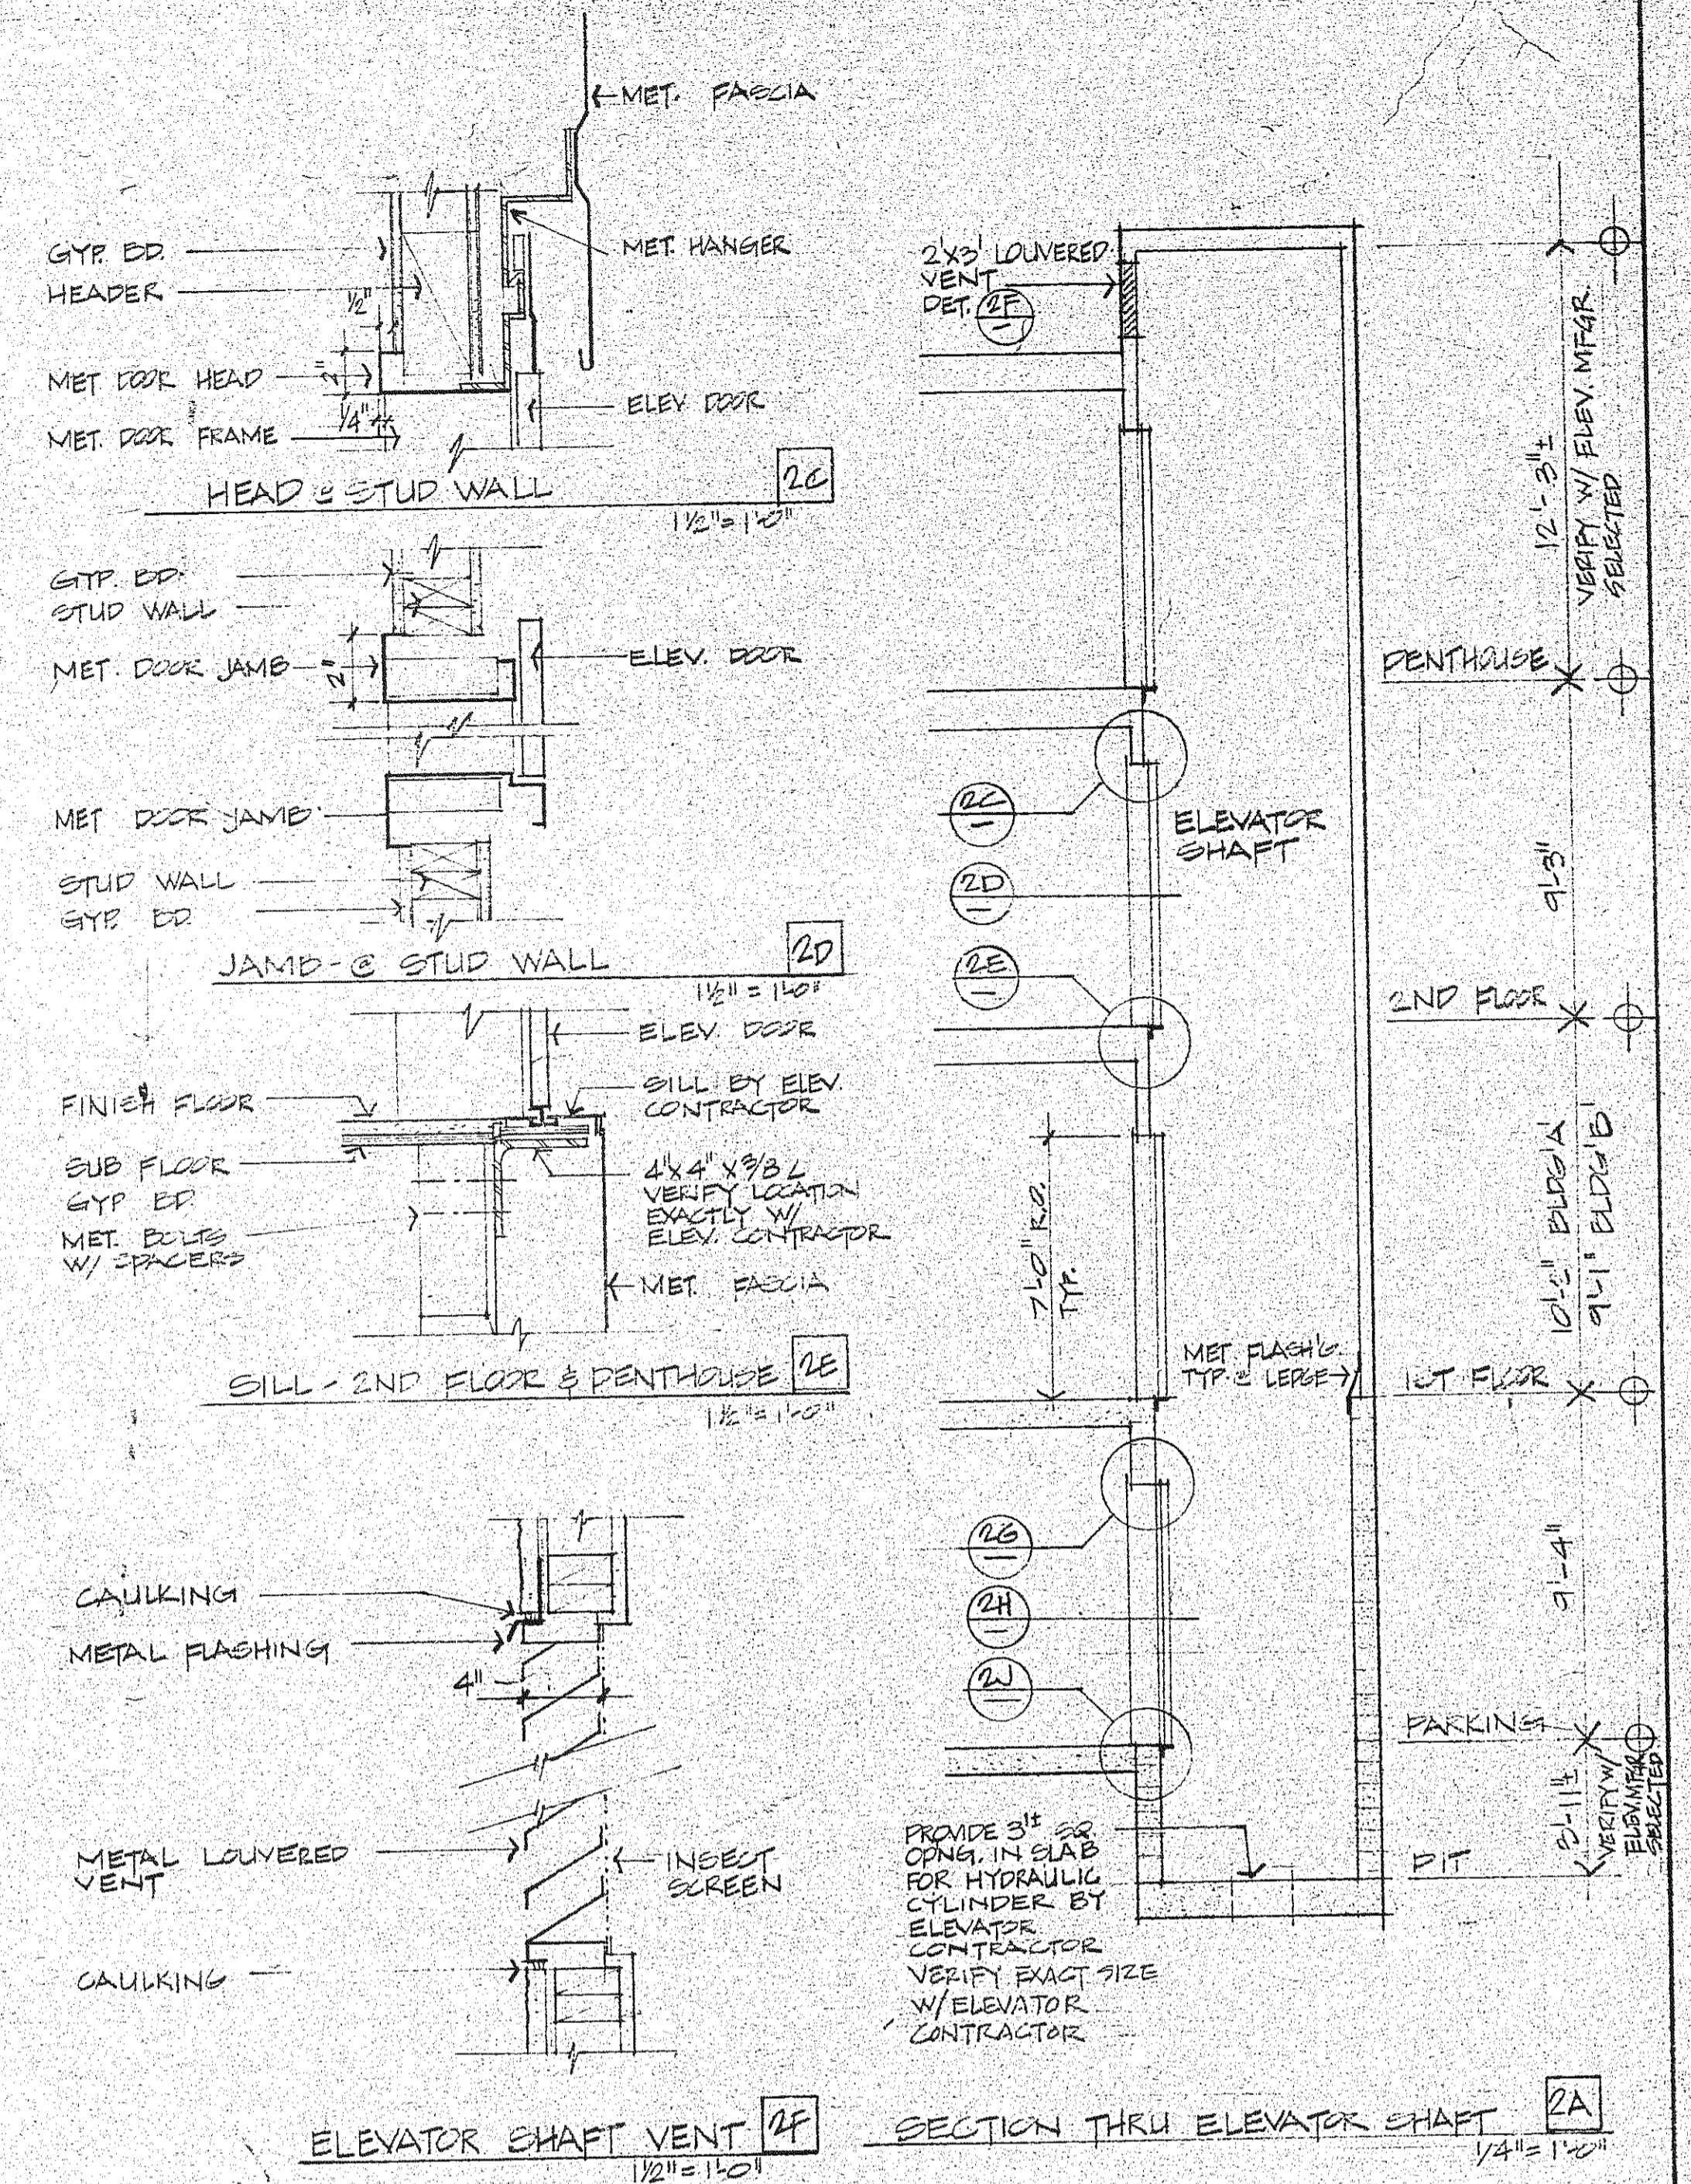 ← MET. FASCIA
GYP. BD.
HEADER
1/2"
MET. HANGER
2"
MET DOOR HEAD
1/4"
MET. DOOR FRAME
ELEV DOOR
HEAD @ STUD WALL
2C
1 1/2" = 1'-0"
GYP. BD.
STUD WALL
MET. DOOR JAMB
2"
ELEV. DOOR
MET DOOR JAMB
STUD WALL
GYP. BD.
JAMB - @ STUD WALL
2D
1 1/2" = 1'-0"
ELEV. DOOR
FINISH FLOOR
SILL BY ELEV.
CONTRACTOR
SUB FLOOR
GYP BD.
MET. BOLTS
W/ SPACERS
4" X 4" X 3/8 L
VERIFY LOCATION
EXACTLY W/
ELEV. CONTRACTOR
MET. FASCIA
SILL - 2ND FLOOR & PENTHOUSE
2E
1 1/2" = 1'-0"
CAULKING
METAL FLASHING
4"
METAL LOUVERED
VENT
INSECT
SCREEN
CAULKING
ELEVATOR SHAFT VENT
2F
1 1/2" = 1'-0"
2'X3' LOUVERED
VENT
DET. 2F
12'-3"±
VERIFY W/ ELEV. MFGR.
SELECTED
PENTHOUSE
2C
ELEVATOR
SHAFT
2D
9'-3"
2E
2ND FLOOR
7'-0" R.O.
TYP.
BLDG 'A'
9'-1" BLDG 'B'
MET FLASH'G.
TYP. @ LEDGE
1ST FLOOR
2G
9'-4"
2H
2J
PARKING
VERIFY W/
ELEV. MFGR
SELECTED
PIT
PROVIDE 3'± SQ.
OPNG. IN SLAB
FOR HYDRAULIC
CYLINDER BY
ELEVATOR
CONTRACTOR
VERIFY EXACT SIZE
W/ ELEVATOR
CONTRACTOR
SECTION THRU ELEVATOR SHAFT
2A
1/4" = 1'-0"